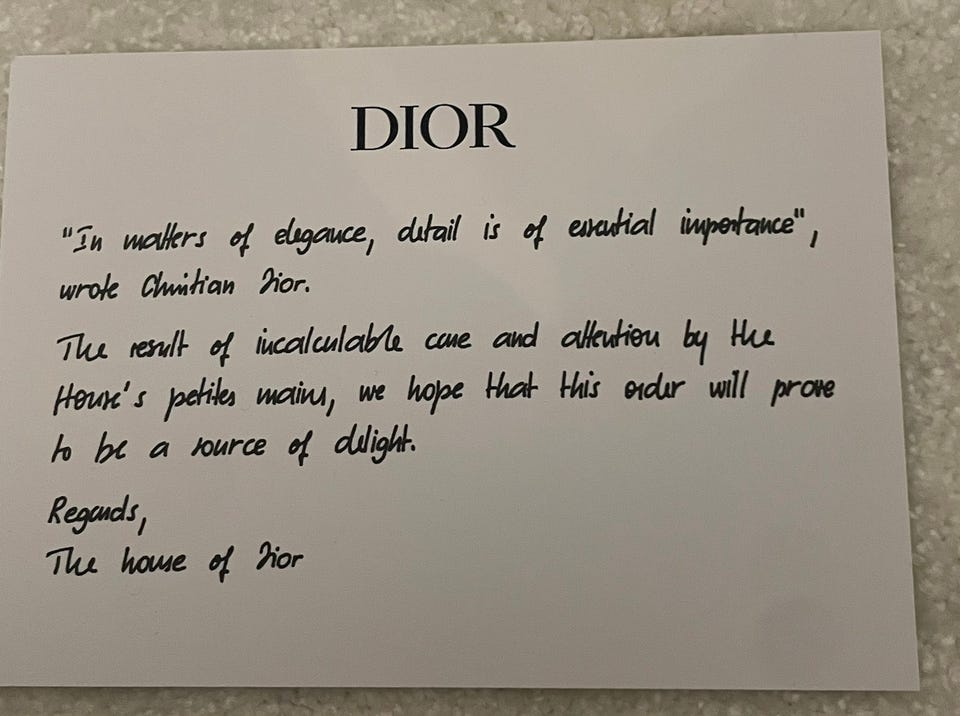 DIOR
"In matters of elegance, detail is of essential importance",
wrote Christian Dior.
The result of incalculable care and attention by the
House's petites mains, we hope that this order will prove
to be a source of delight.
Regards,
The house of Dior